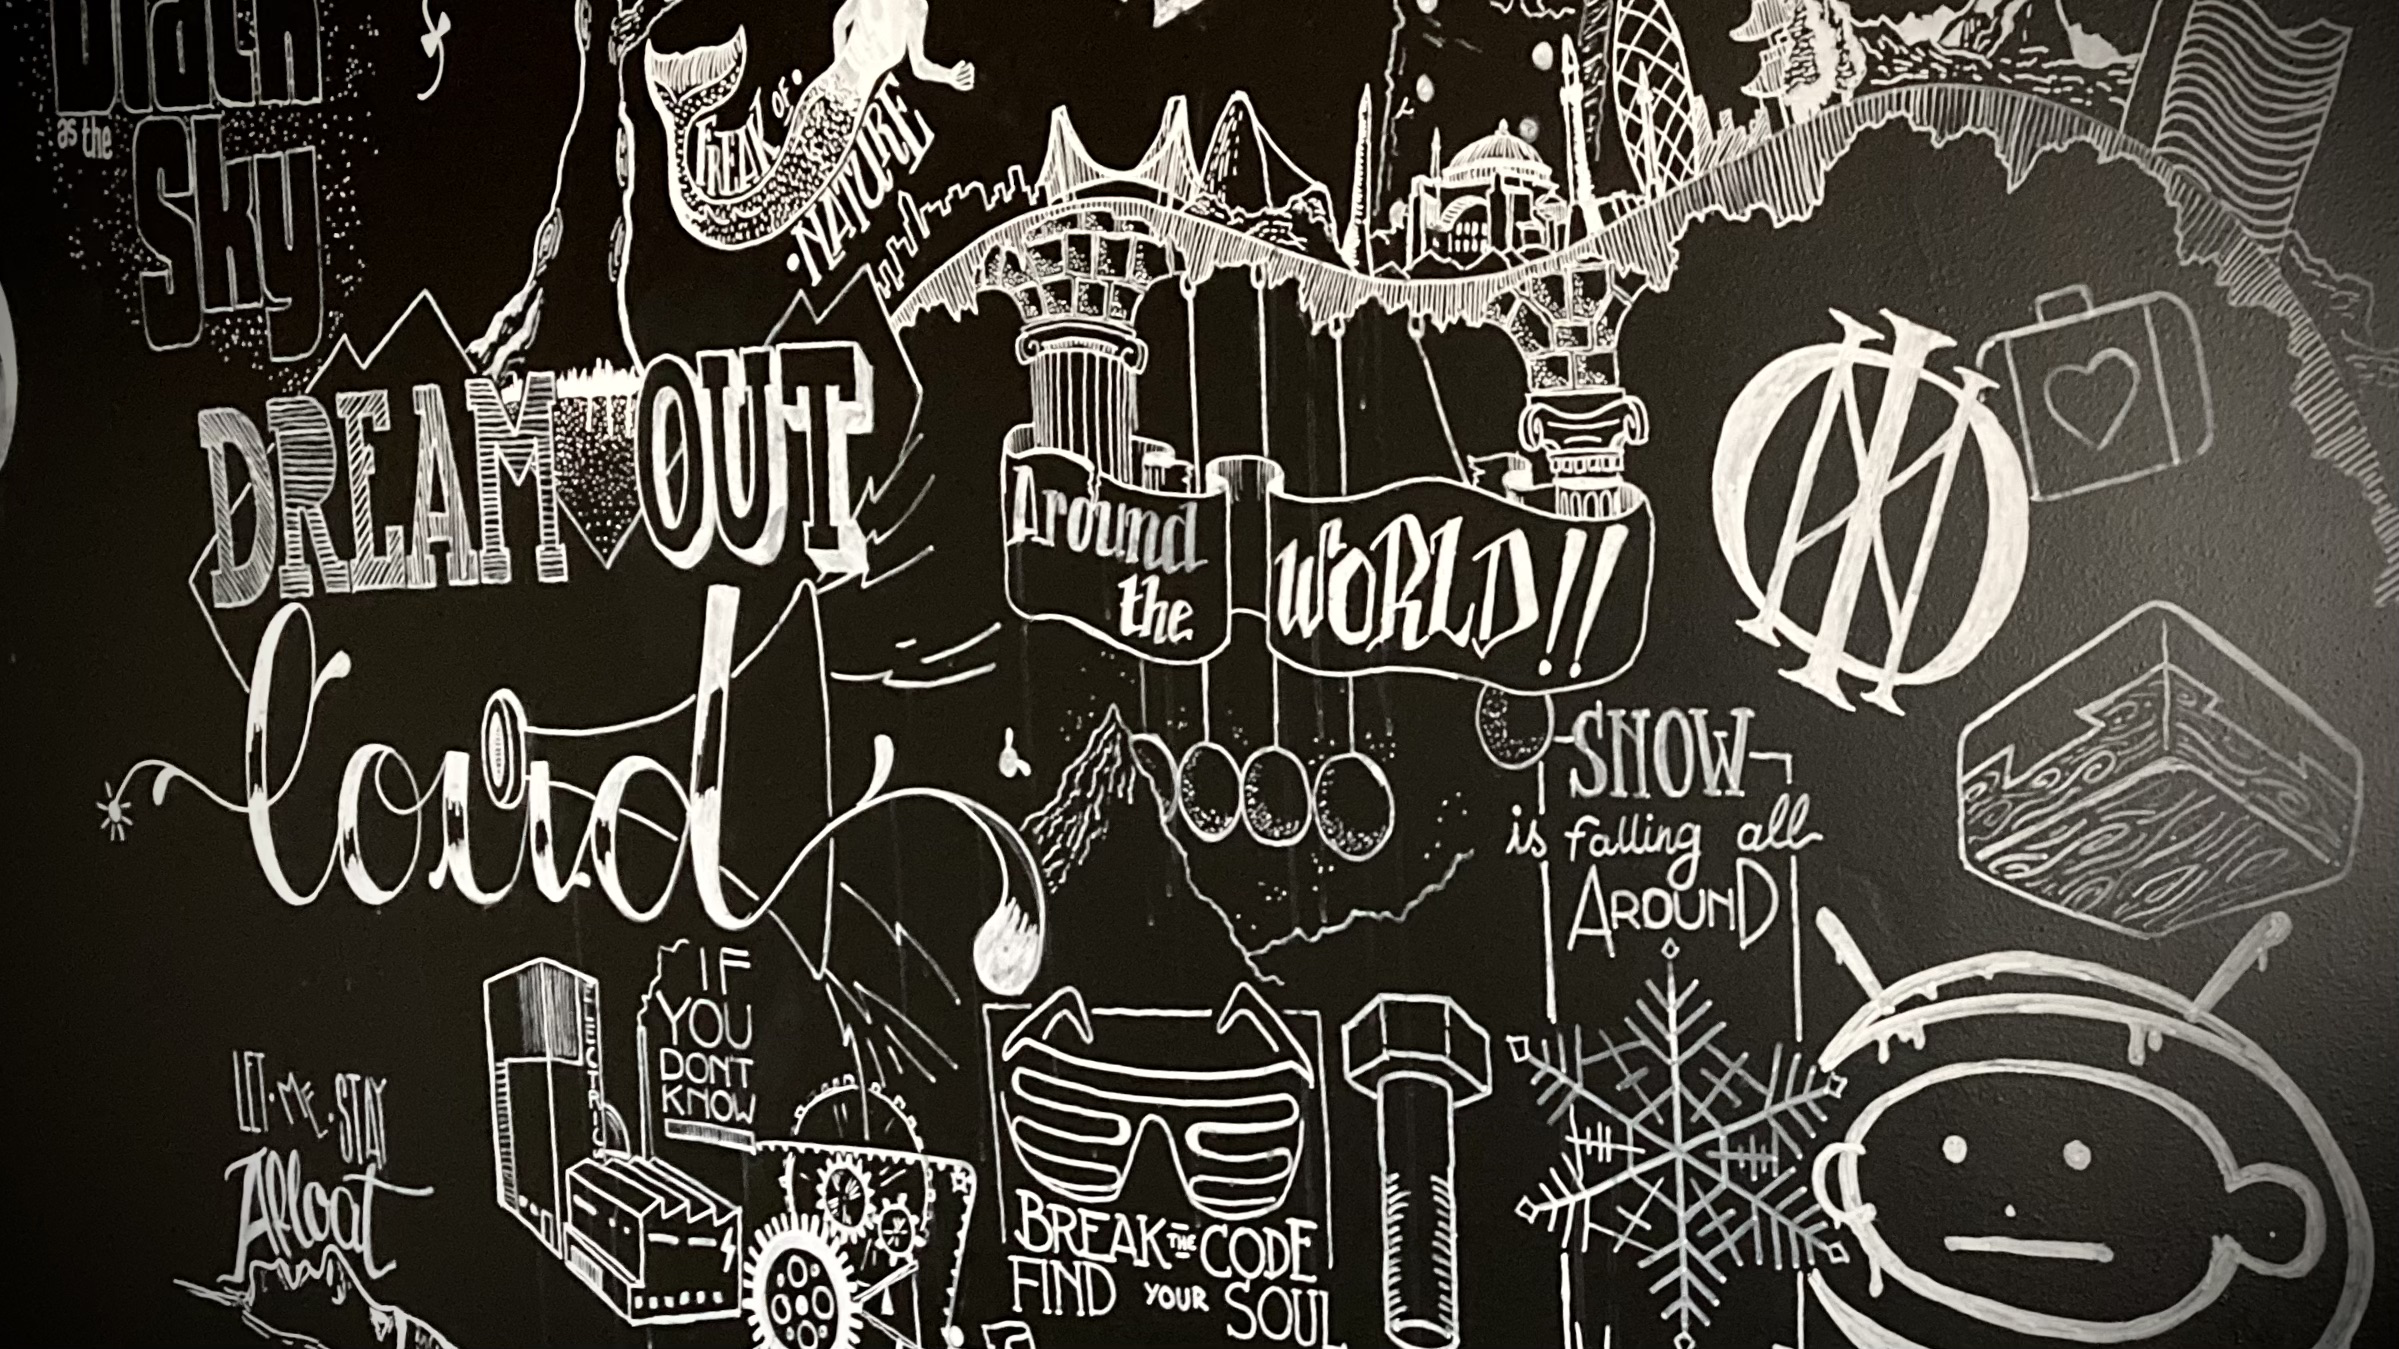 Black
as the
Sky
FREAK OF
NATURE
DREAM OUT
Loud
Around
the
WORLD!!
SNOW
is falling all
AROUND
IF
YOU
DON'T
KNOW
LET · ME · STAY
Afloat
BREAK THE CODE
FIND YOUR SOUL